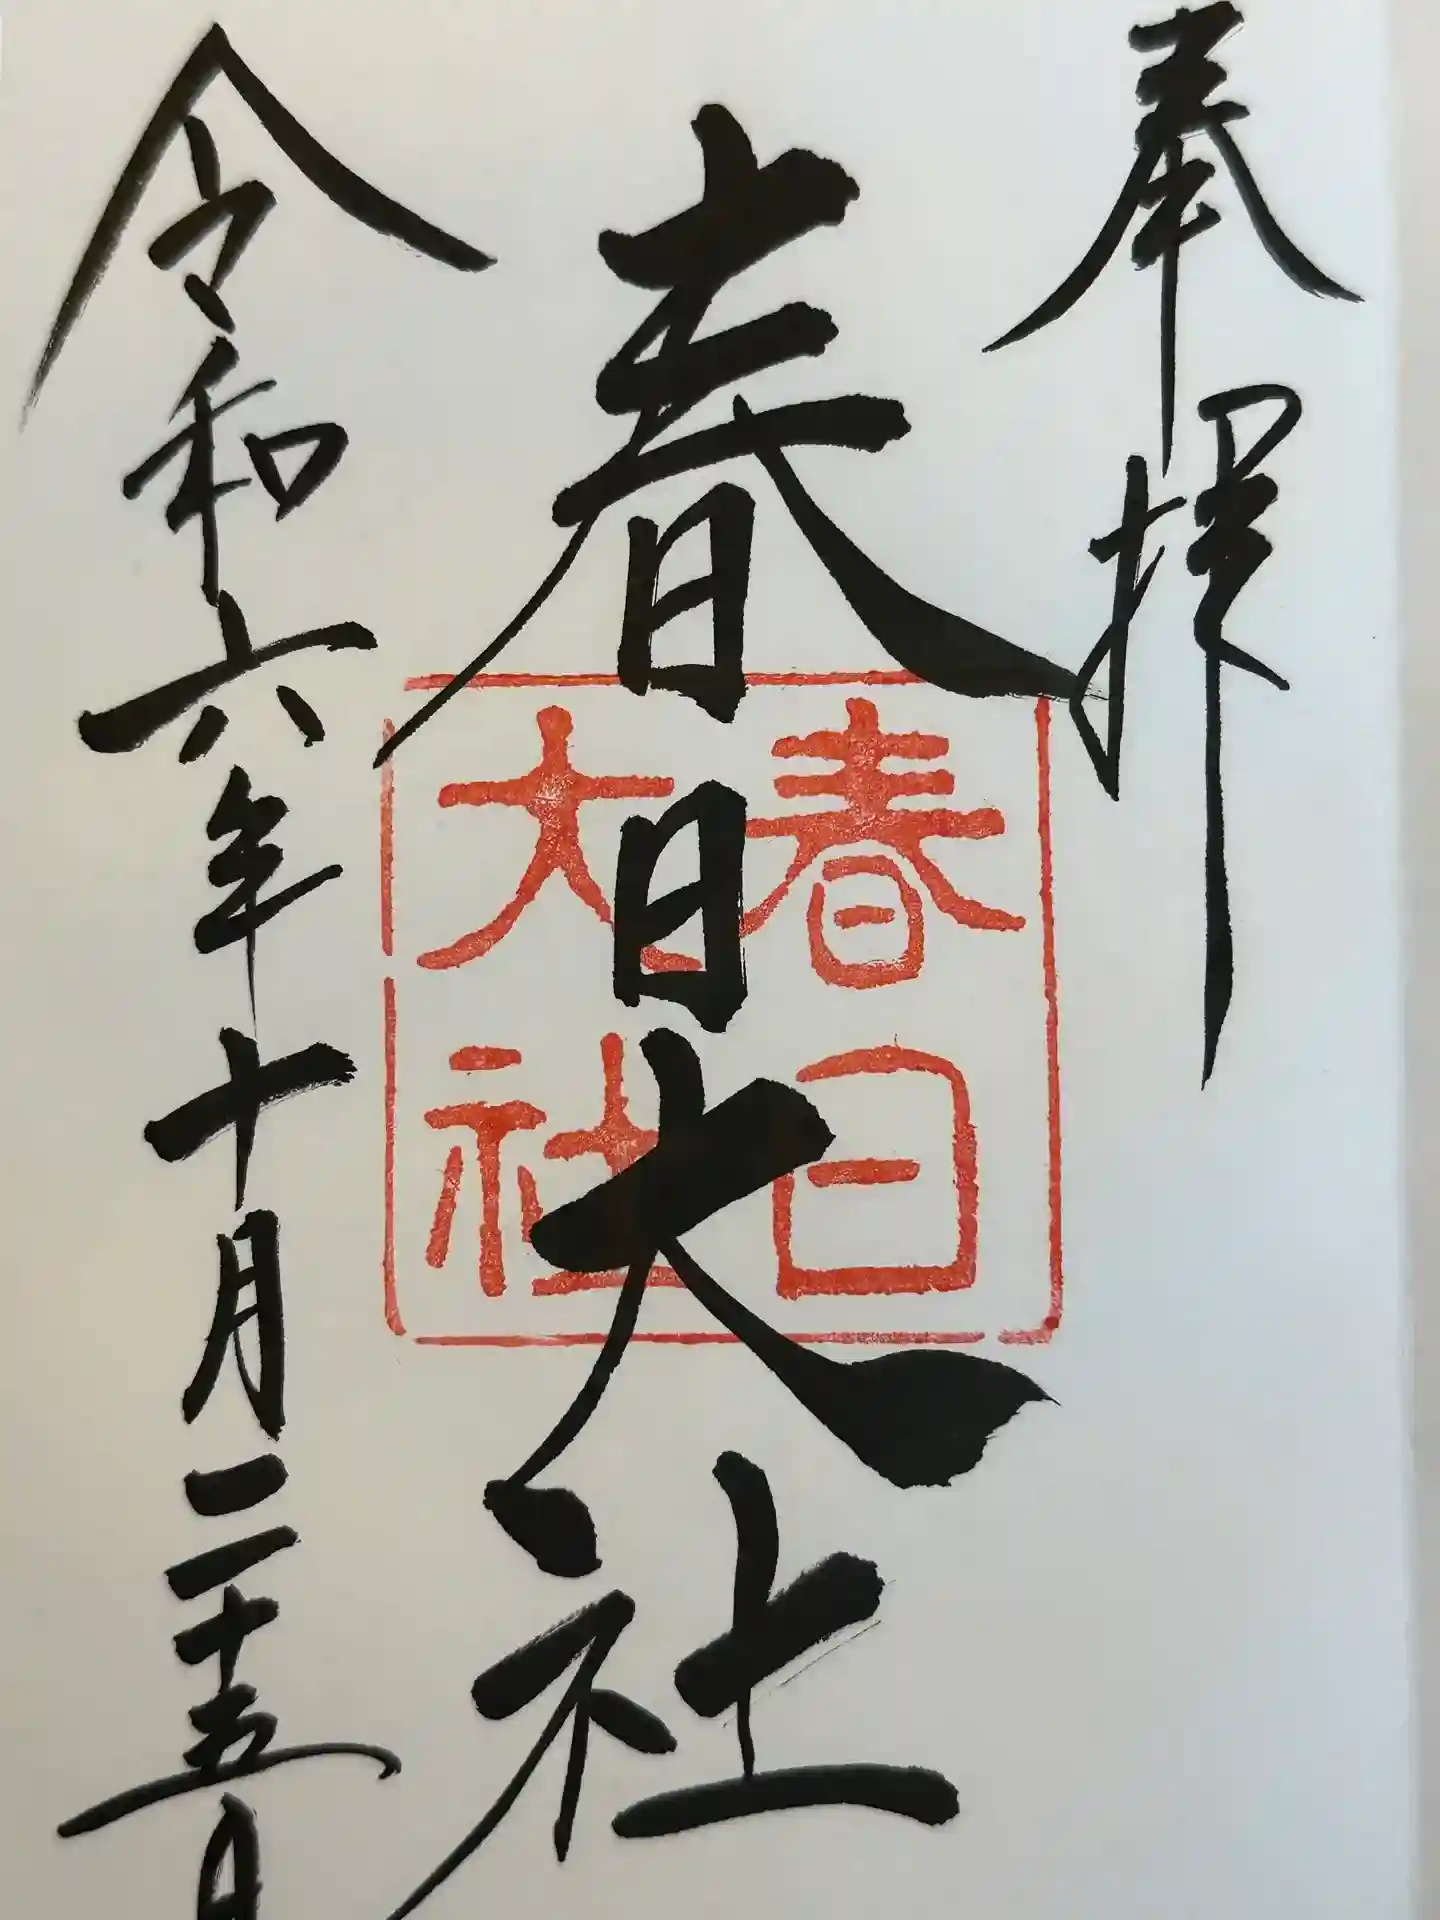 奉拝
春日大社
春日
大社
令和六年十月二十五日